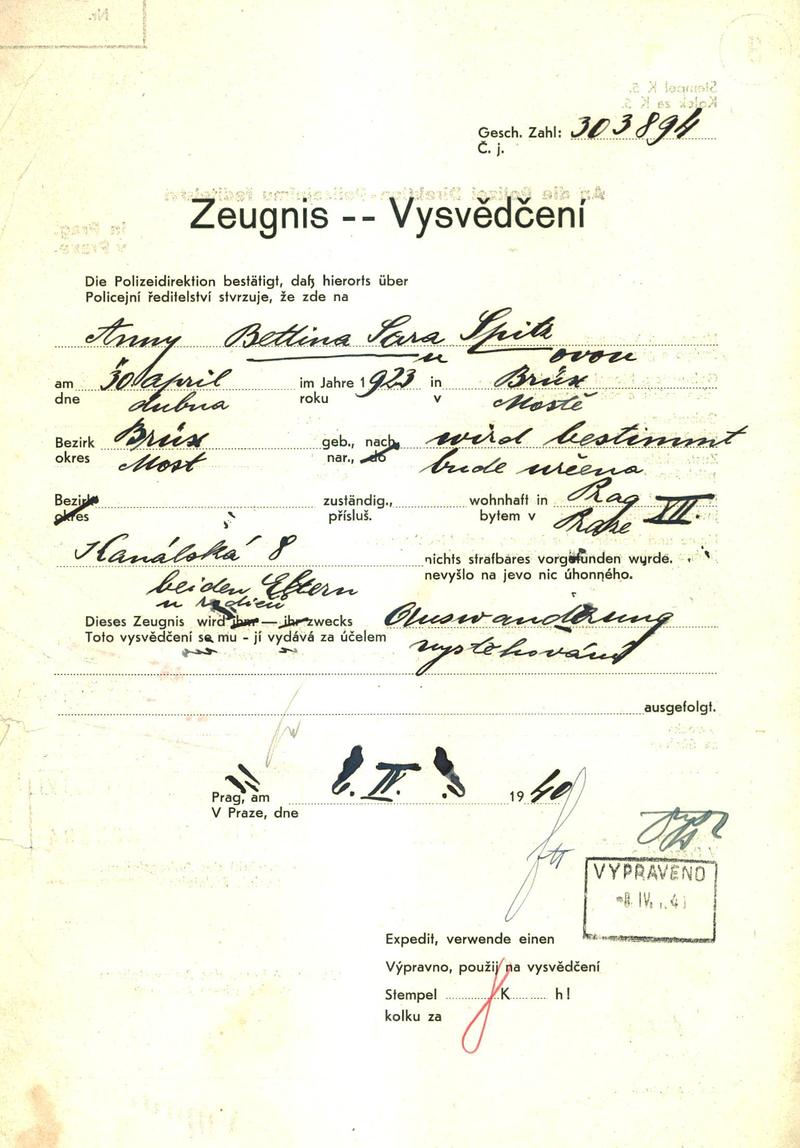 Gesch. Zahl: 303894
Č. j.
Zeugnis -- Vysvědčení
Die Polizeidirektion bestätigt, daß hierorts über
Policejní ředitelství stvrzuje, že zde na
Anny Bettina Sara Spitz
u ovou
am 30 april im Jahre 1923 in Brüx
dne dubna roku v Mostě
Bezirk Brüx geb., nach wird bestimmt
okres Most nar., do bude určena
Bezirk zuständig., wohnhaft in Prag XII.
okres přísluš. bytem v Praze
Kanálská 8 nichts strafbares vorgefunden wurde.
nevyšlo na jevo nic úhonného.
beiden Eltern
u rodičů
Dieses Zeugnis wird ihm — ihr zwecks Auswanderung
Toto vysvědčení se mu - jí vydává za účelem vystěhování
ausgefolgt.
Prag, am IV. 1940
V Praze, dne
VYPRAVENO
IV.
Expedit, verwende einen
Výpravno, použij na vysvědčení
Stempel K h!
kolku za